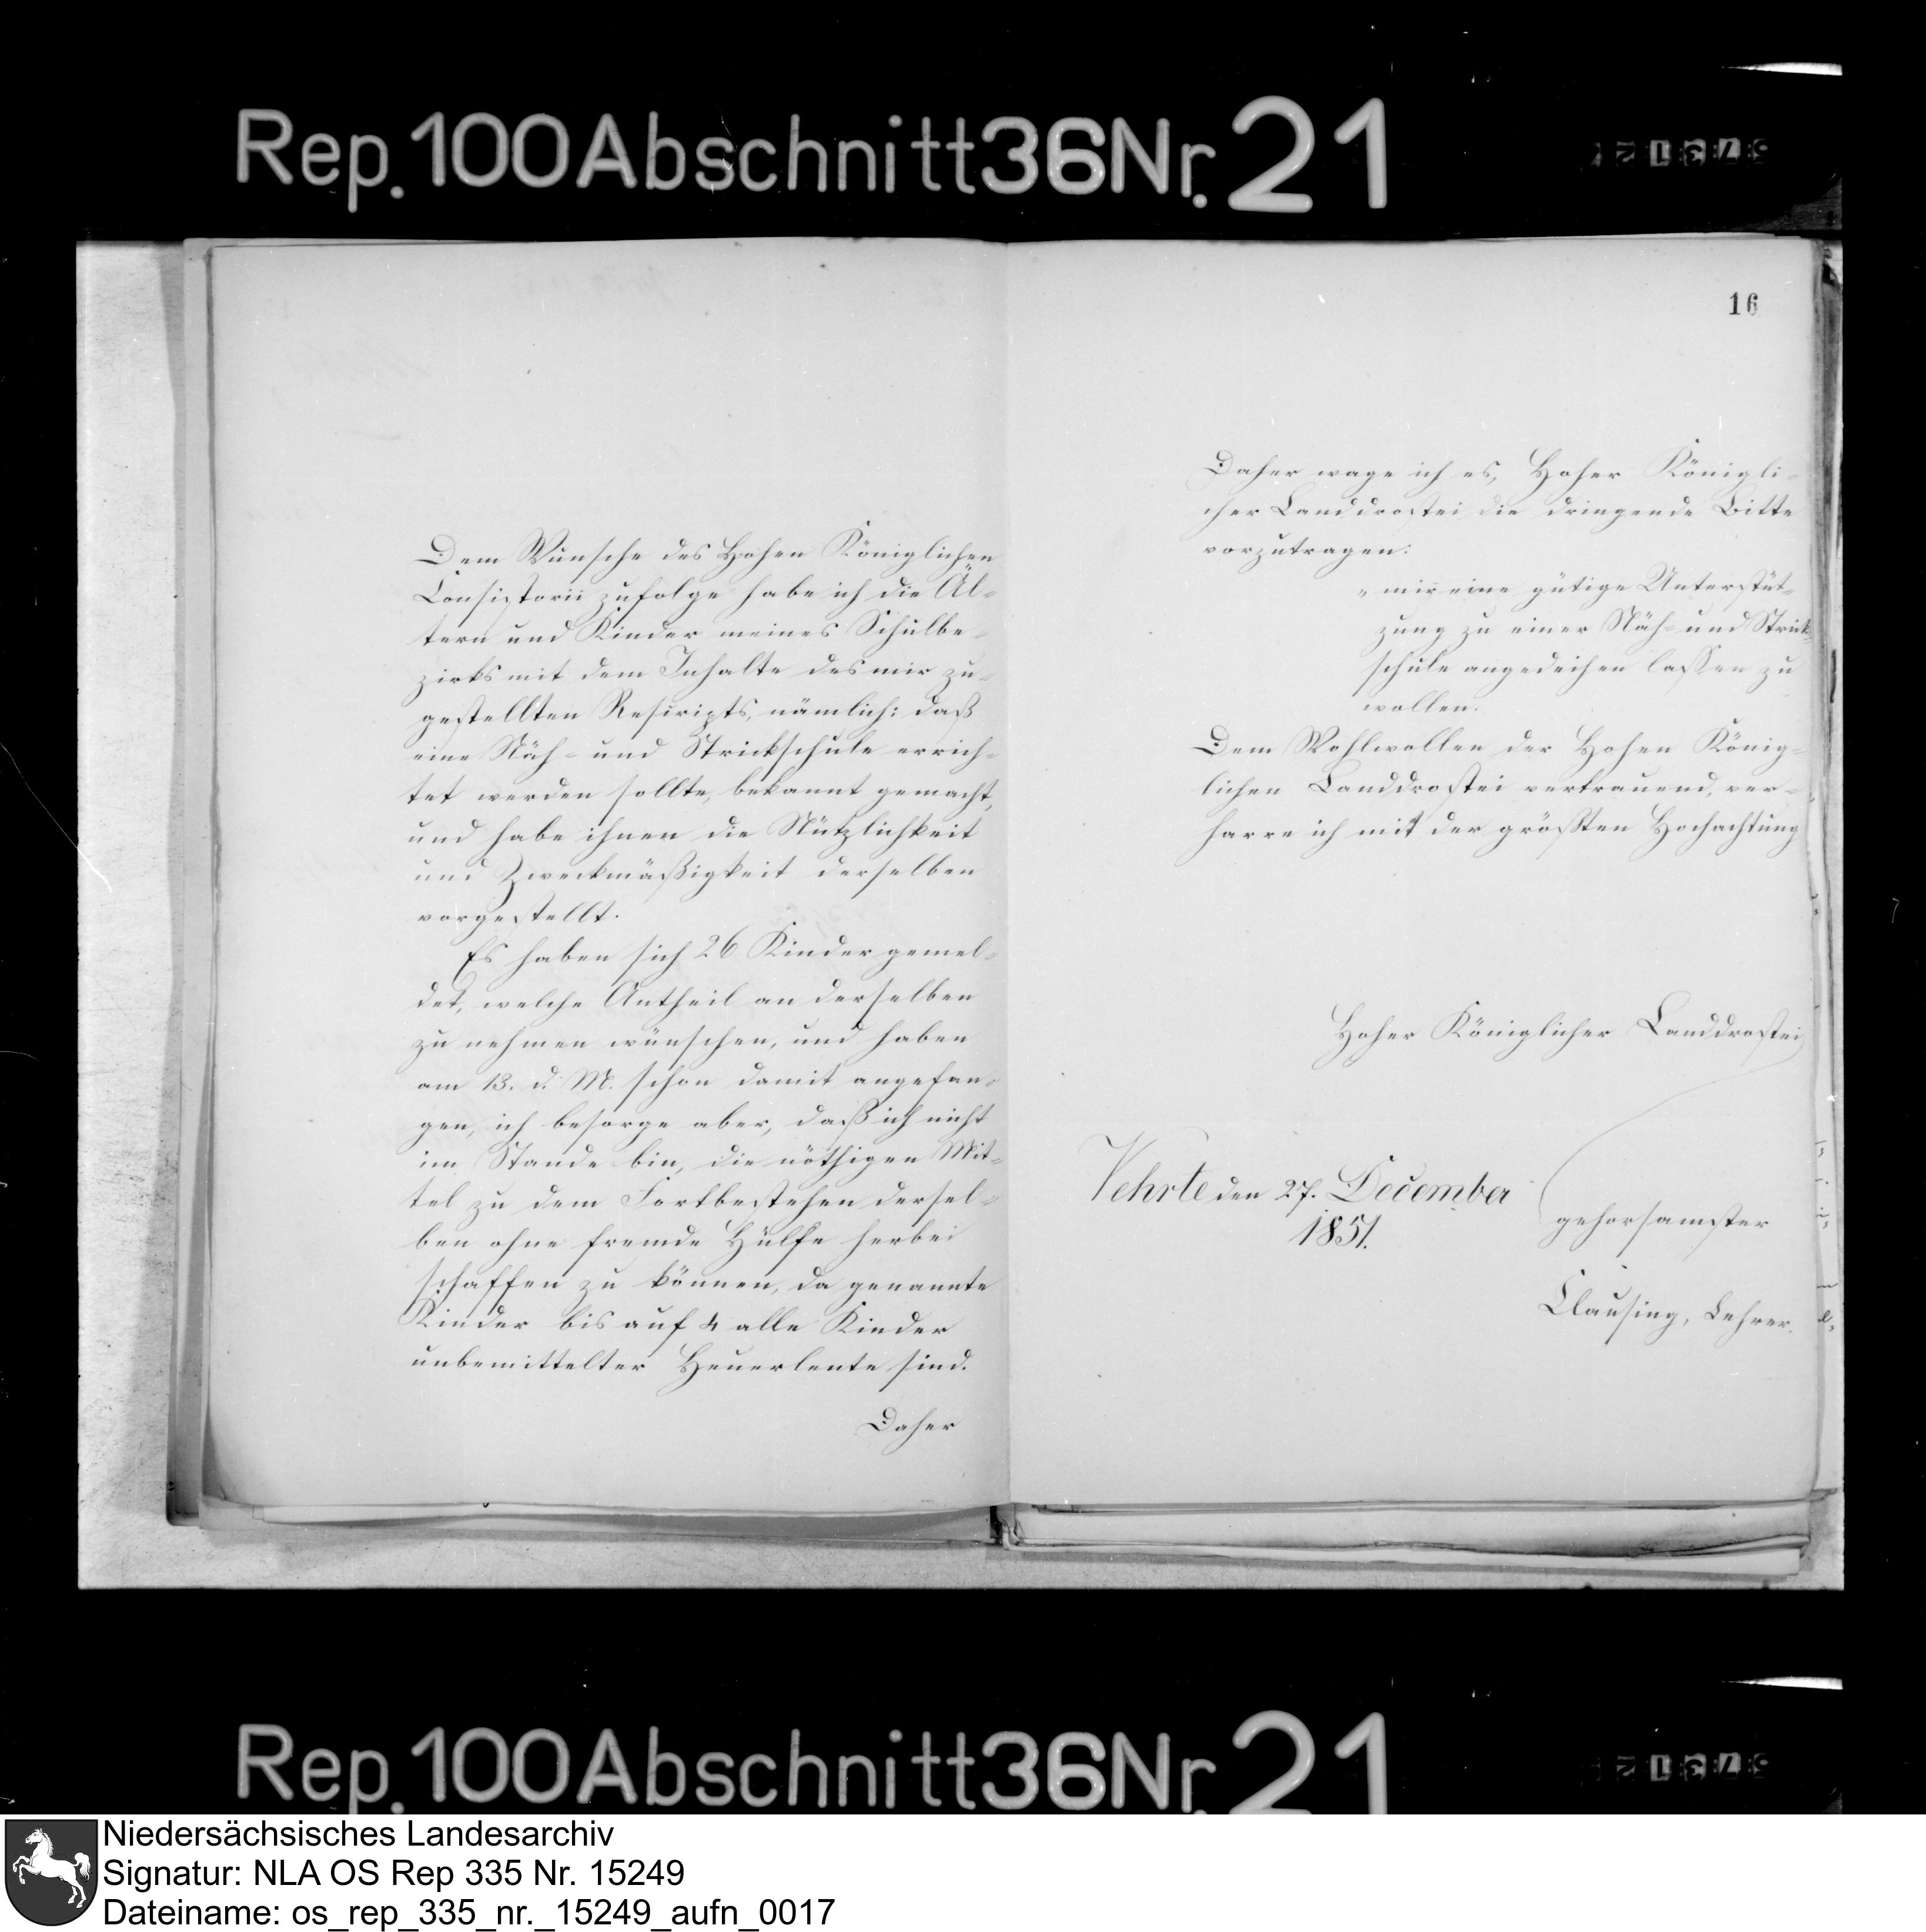 Rep. 100 Abschnitt 36 Nr. 21
Dem Wunsche des Hohen Königlichen
Consistorii zufolge habe ich die Äl-
tern und Kinder meines Schulbe-
zirks mit dem Inhalte des mir zu-
gestellten Rescripts, nämlich: daß
eine Näh- und Strickschule errich-
tet werden sollte, bekannt gemacht,
und habe ihnen die Nützlichkeit
und Zweckmäßigkeit derselben
vorgestellt.
Es haben sich 26 Kinder gemel-
det, welche Antheil an derselben
zu nehmen wünschen, und haben
am 13. d. M. schon damit angefan-
gen, ich besorge aber, daß ich nicht
im Stande bin, die nöthigen Mit-
tel zu dem Fortbestehen dersel-
ben ohne fremde Hülfe herbei
schaffen zu können, da genannte
Kinder bis auf 4 alle Kinder
unbemittelter Heuerleute sind.
Daher
16
Daher wage ich es, Hoher Königli-
cher Landdrostei die dringende Bitte
vorzutragen:
„mir eine gütige Unterstüt-
zung zu einer Näh- und Strick-
schule angedeihen lassen zu
wollen.
Dem Wohlwollen der Hohen König-
lichen Landdrostei vertrauend, ver-
harre ich mit der größten Hochachtung
Hoher Königlicher Landdrostei
Vehrte den 27. December
1851.
gehorsamster
Clausing, Lehrer.
Rep. 100 Abschnitt 36 Nr. 21
Niedersächsisches Landesarchiv
Signatur: NLA OS Rep 335 Nr. 15249
Dateiname: os_rep_335_nr._15249_aufn_0017